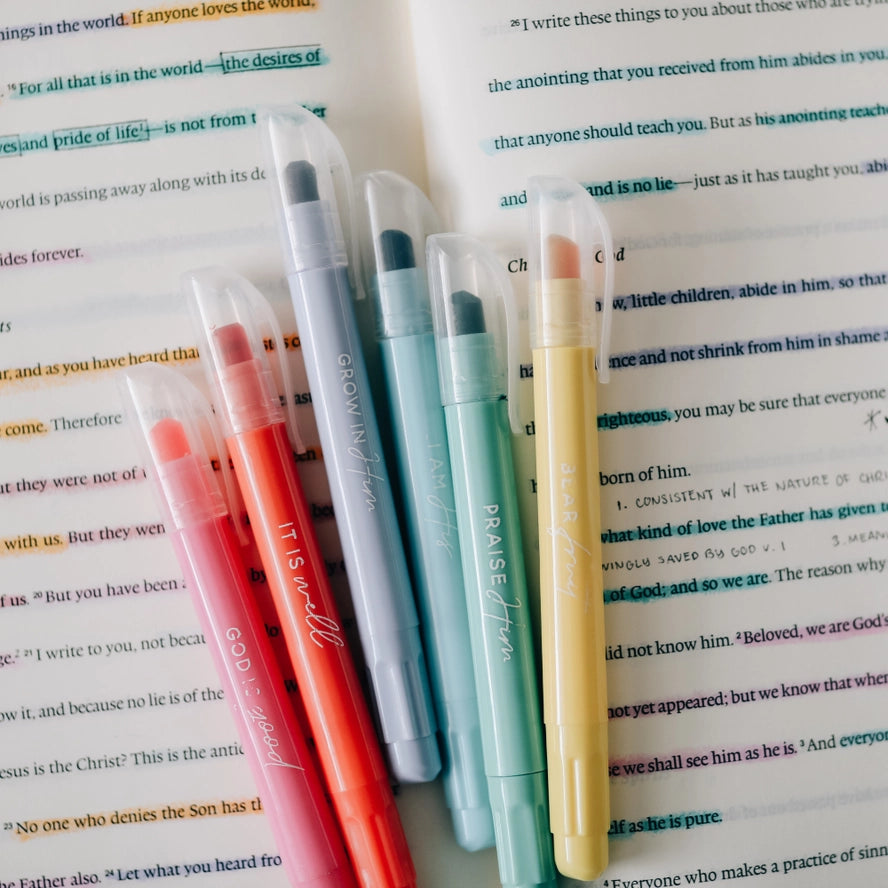 things in the world. If anyone loves the world,
16 For all that is in the world—the desires of
eyes and pride of life1—is not from
world is passing away along with its
abides forever.
and as you have heard that
come. Therefore
they were not of
with us. But they
us. 20 But you have been
2 21 I write to you, not
it, and because no lie is of the
Jesus is the Christ? This is the
23 No one who denies the Son has
the Father also. 24 Let what you heard
26 I write these things to you about those who are
the anointing that you received from him abides in you.
that anyone should teach you. But as his anointing
and is no lie—just as it has taught you,
little children, abide in him, so that
and not shrink from him in shame
righteous, you may be sure that everyone
born of him.
1. CONSISTENT W/ THE NATURE OF
what kind of love the Father has given
SAVED BY GOD V. 1
of God; and so we are. The reason why
did not know him. 2 Beloved, we are God's
not yet appeared; but we know that when
we shall see him as he is. 3 And
as he is pure.
4 Everyone who makes a practice of
GOD is good
IT IS well
GROW IN Him
I AM His
PRAISE Him
BEAR fruit